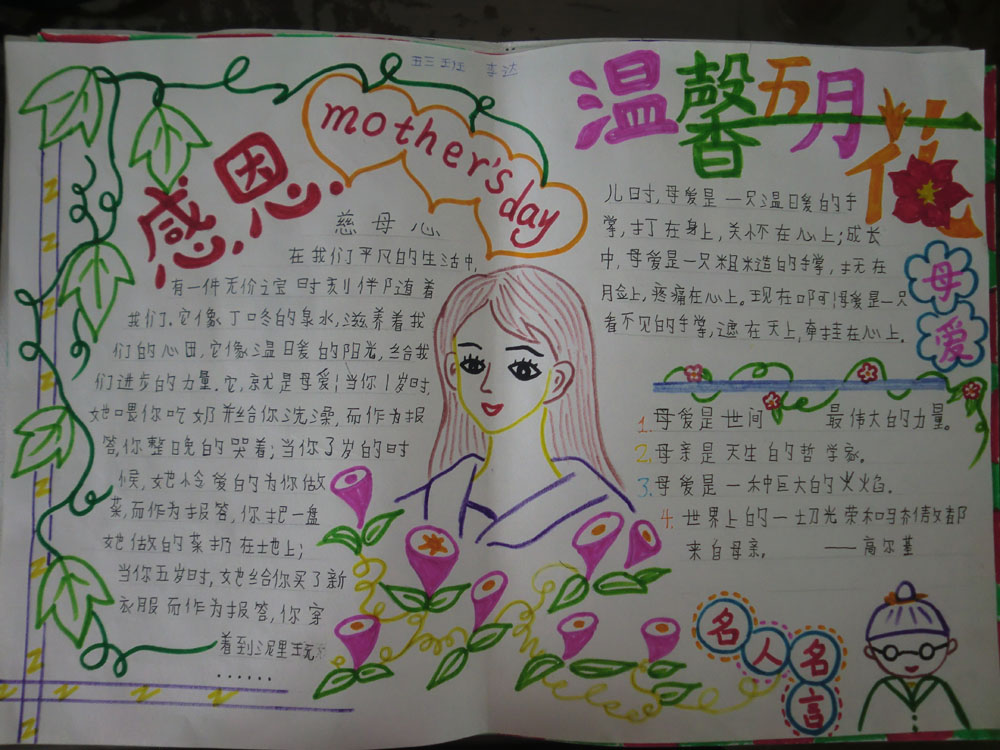 感恩
mother's day
慈母心
在我们平凡的生活中,
有一件无价之宝时刻伴随着
我们.它像丁咚的泉水,滋养着我
们的心田,它像温暖的阳光,给我
们进步的力量.它,就是母爱!当你1岁时,
她喂你吃奶并给你洗澡,而作为报
答,你整晚的哭着;当你了岁的时
候,她怜爱的为你做
菜,而作为报答,你把一盘
她做的菜扔在地上;
当你五岁时,她给你买了新
衣服而作为报答,你穿
着到泥里玩
......
温馨五月花
母爱
儿时,母爱是一只温暖的手
掌,打在身上,关怀在心上;成长
中,母爱是一只粗糙的手掌,抚在
脸上,疼痛在心上。现在呵!母爱是一只
看不见的手掌,遮在天上,牵挂在心上。
1.母爱是世间 最伟大的力量。
2.母亲是天生自的哲学家。
3.母爱是一种巨大的火焰。
4.世界上的一切光荣和骄傲都
来自母亲。 ——高尔基
名人名言